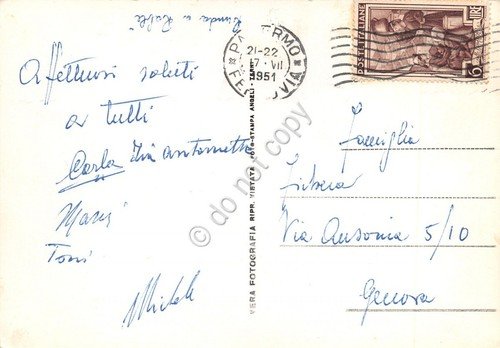 PALERMO
FERROVIA
21-22
17·VII
1951
POSTE ITALIANE
LIRE
6
Affettuosi saluti
a tutti
Carla Zia Antonietta
Toni
Michele
VERA FOTOGRAFIA RIPR. VIETATA FOTO-STAMPA ANGELI
Famiglia
Via Ausonia 5/10
Genova
do not copy